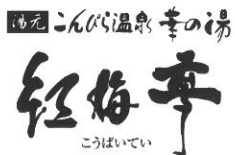 湯元 こんぴら温泉 華の湯
紅梅亭
こうばいてい